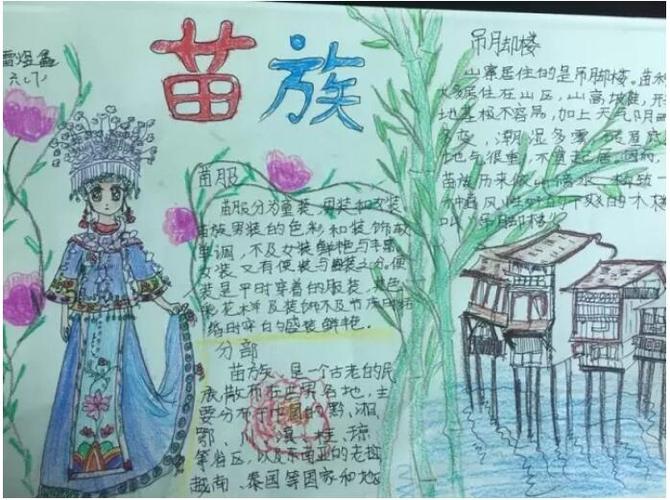 苗族
雷煜鑫
六(7)
苗服
苗服分为童装,男装和女装。
苗族男装的色彩和装饰较
单调,不及女装鲜艳与丰富。
女装又有便装与盛装之分。便
装是平时穿着的服装,其色
彩花木羊及装饰不及节庆时结
婚时穿白勺盛装鲜艳。
分部
苗族,是一个古老的民
族,散布在世界各地,主
要分布于中国的黔、湘、
鄂、川、滇、桂、琼
等省区,以及东南亚的老挝、
越南、泰国等国家和地
吊月却楼
山寨居住的是吊脚楼。苗
大多居住在山区,山高坡陡,开
地基极不容易,加上天气阴雨
多变,潮湿多雾,
地气很重,不宜起居,因而,
苗族历来依山傍水,构筑一
种通风性好的干爽的木楼
叫"吊脚楼"